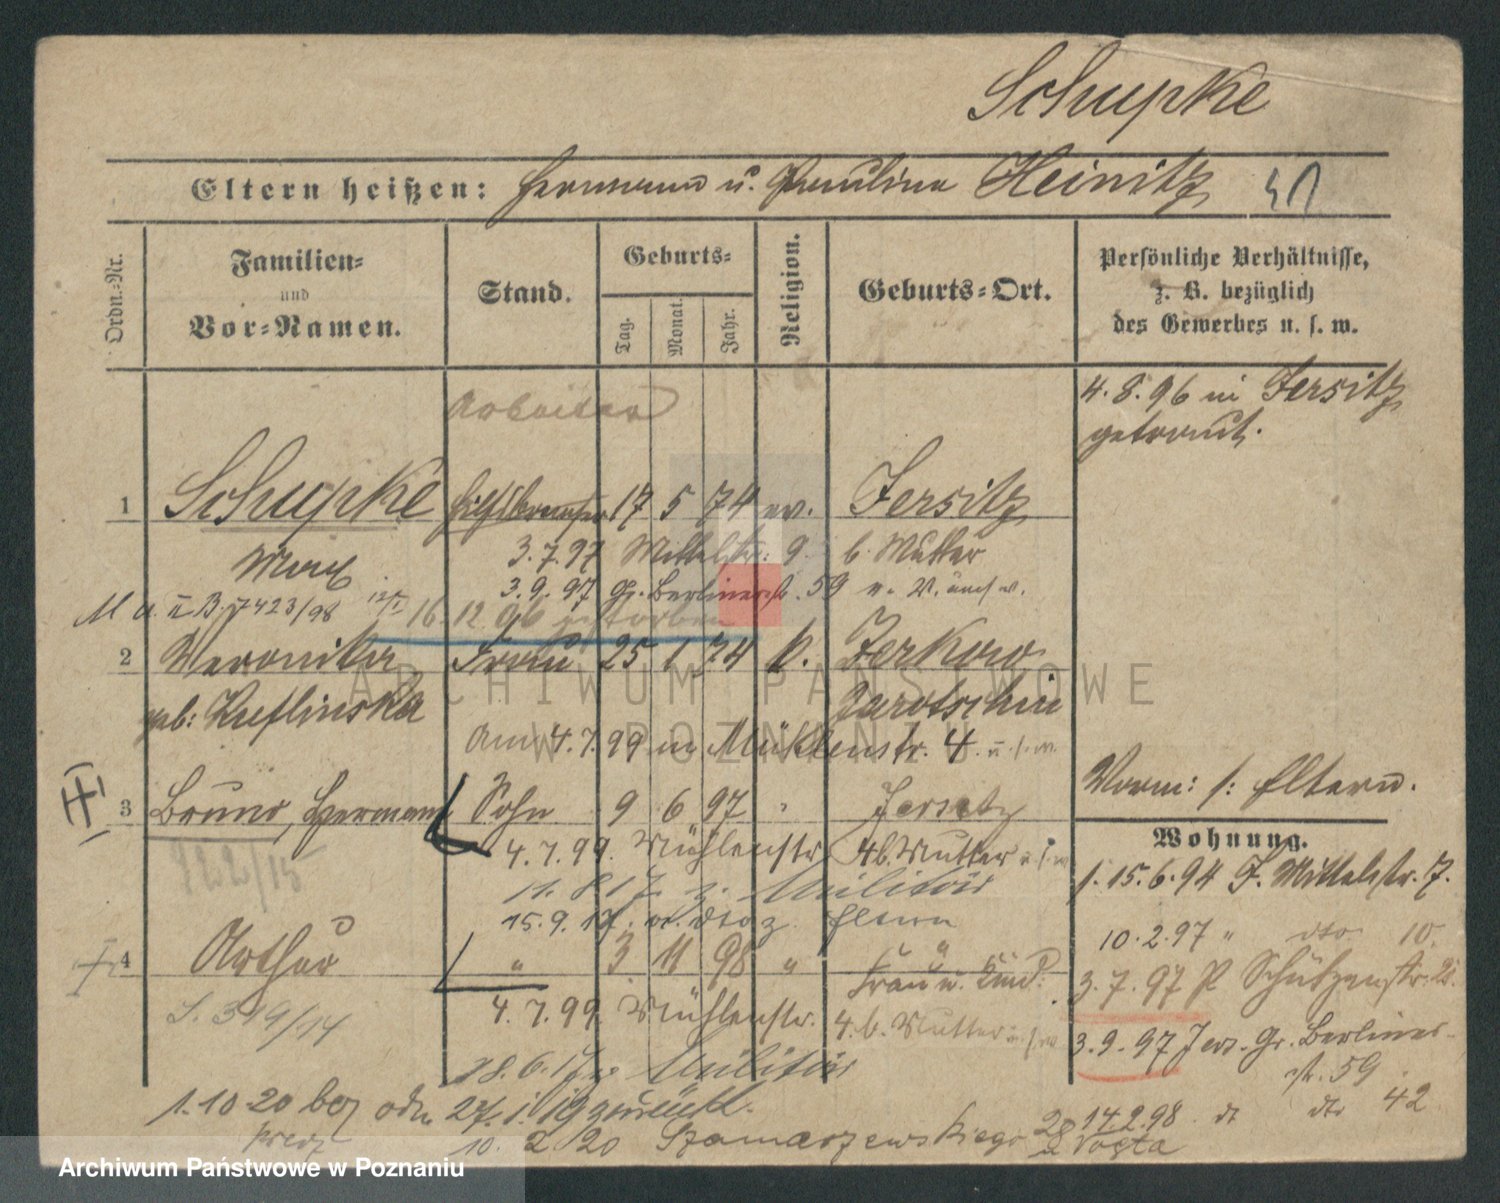 Schupke
Eltern heißen: Hermann u. Paulina Heinitz
Ordn.-Nr.
Familien-
und
Vor-Namen.
Stand.
Geburts-
Tag.
Monat.
Jahr.
Religion.
Geburts-Ort.
Persönliche Verhältnisse,
z. B. bezüglich
des Gewerbes u. s. w.
Arbeiter
4. 8. 96 in Jersitz
getraut.
1 Schupke 17 5 74 ev. Jersitz
Max 3. 7. 97 Mittelstr. 9 b. Mutter
3. 9. 97 Gr. Berlinerstr. 59
7423/98
16. 12. 96 gestorben
2 Veronika Frau 25 1 74 k. Zerkow
geb: Jarotschin
Am 4. 7. 99 in Mühlenstr. 4 u. s. w.
Vorm: s: Eltern.
3 Bruno, Hermann Sohn 9 6 97 " Jersitz
4. 7. 99. Mühlenstr. 4 b. Mutter u. s. w.
222/15
11. 8. 17 z. Militär
15. 9. 17. Eltern
Wohnung.
1. 15. 6. 94 J. Mittelstr. 7.
10. 2. 97 " dto 10.
3. 7. 97 P. Schützenstr.
3. 9. 97 Jers. Gr. Berliner-
str. 59
14. 2. 98 dt dto 42
4 Arthur " 3 11 98 " "
Frau u. Kind.
4. 7. 99. Mühlenstr. 4. b. Mutter u. s. w.
S. 319/14
18. 6. 17 z. Militär
27. 1. 19 zurück.
1. 10 20
10. 2 20 Szamarzewskiego 28
ARCHIWUM PAŃSTWOWE
W POZNANIU
Archiwum Państwowe w Poznaniu